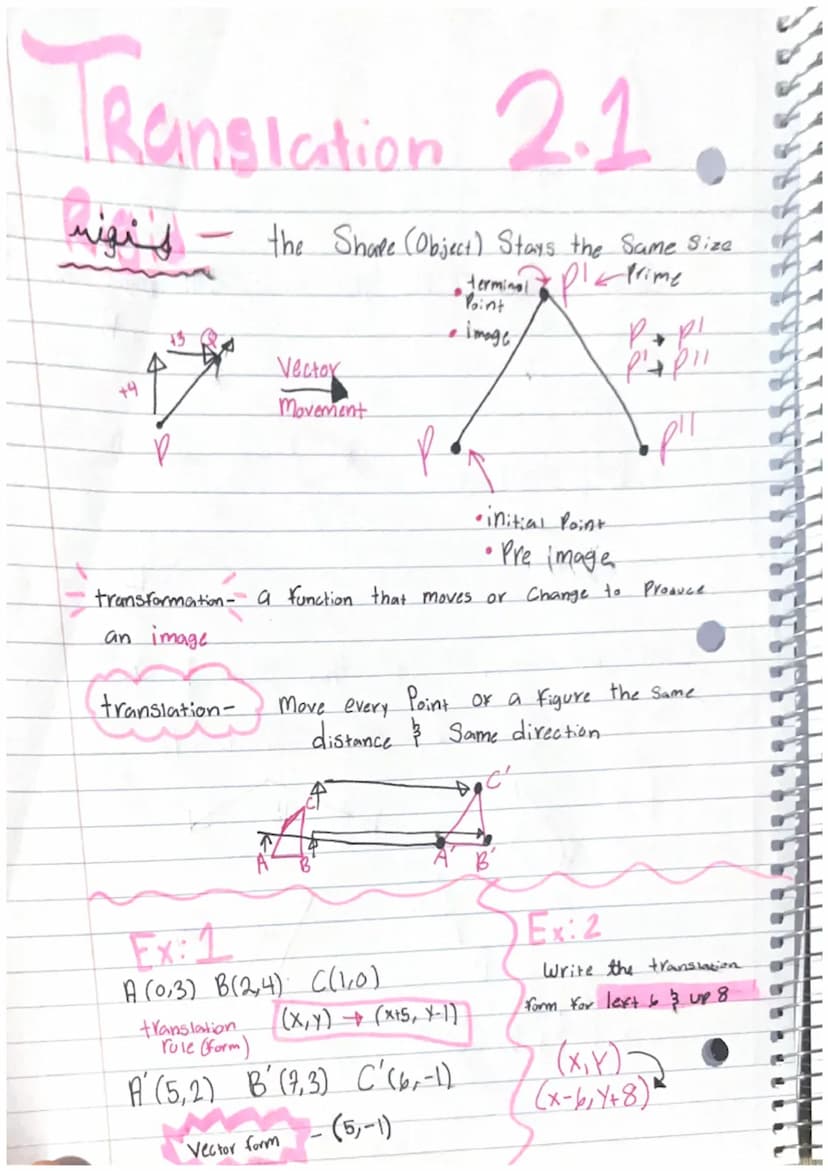 Translation 2.1
Rigid - the Shape (Object) Stays the Same Size
• terminal Point
• image
P' ← Prime
P → P'
P' → P''
+3 Q
+4
P
Vector
Movement
P
P''
• initial Point
• Pre image
transformation - a function that moves or Change to Produce
an image
translation - Move every Point or a Figure the Same
distance & Same direction
C C'
A B A' B'
Ex: 1
A (0,3) B(2,4) C(1,0)
translation rule (form)
(x,y) → (x+5, y-1)
A' (5,2) B' (7,3) C' (6,-1)
Vector form - (5,-1)
Ex: 2
Write the translation
form for left 6 & up 8
(x,y)
(x-6, y+8)